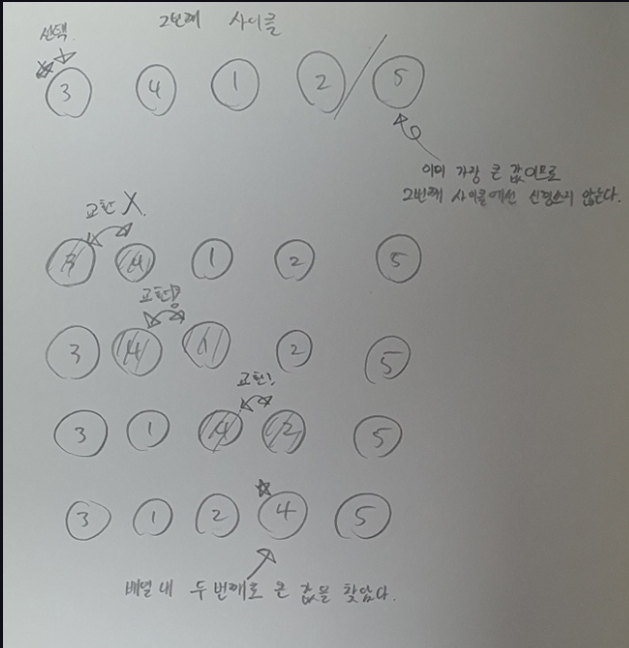 2번째 사이클
선택.
3 4 1 2 / 5
이미 가장 큰 값이므로
2번째 사이클에선 신경쓰지 않는다.
교환 X.
3 4 1 2 5
교환!
3 4 1 2 5
교환!
3 1 4 2 5
3 1 2 4 5
배열 내 두 번째로 큰 값을 찾았다.